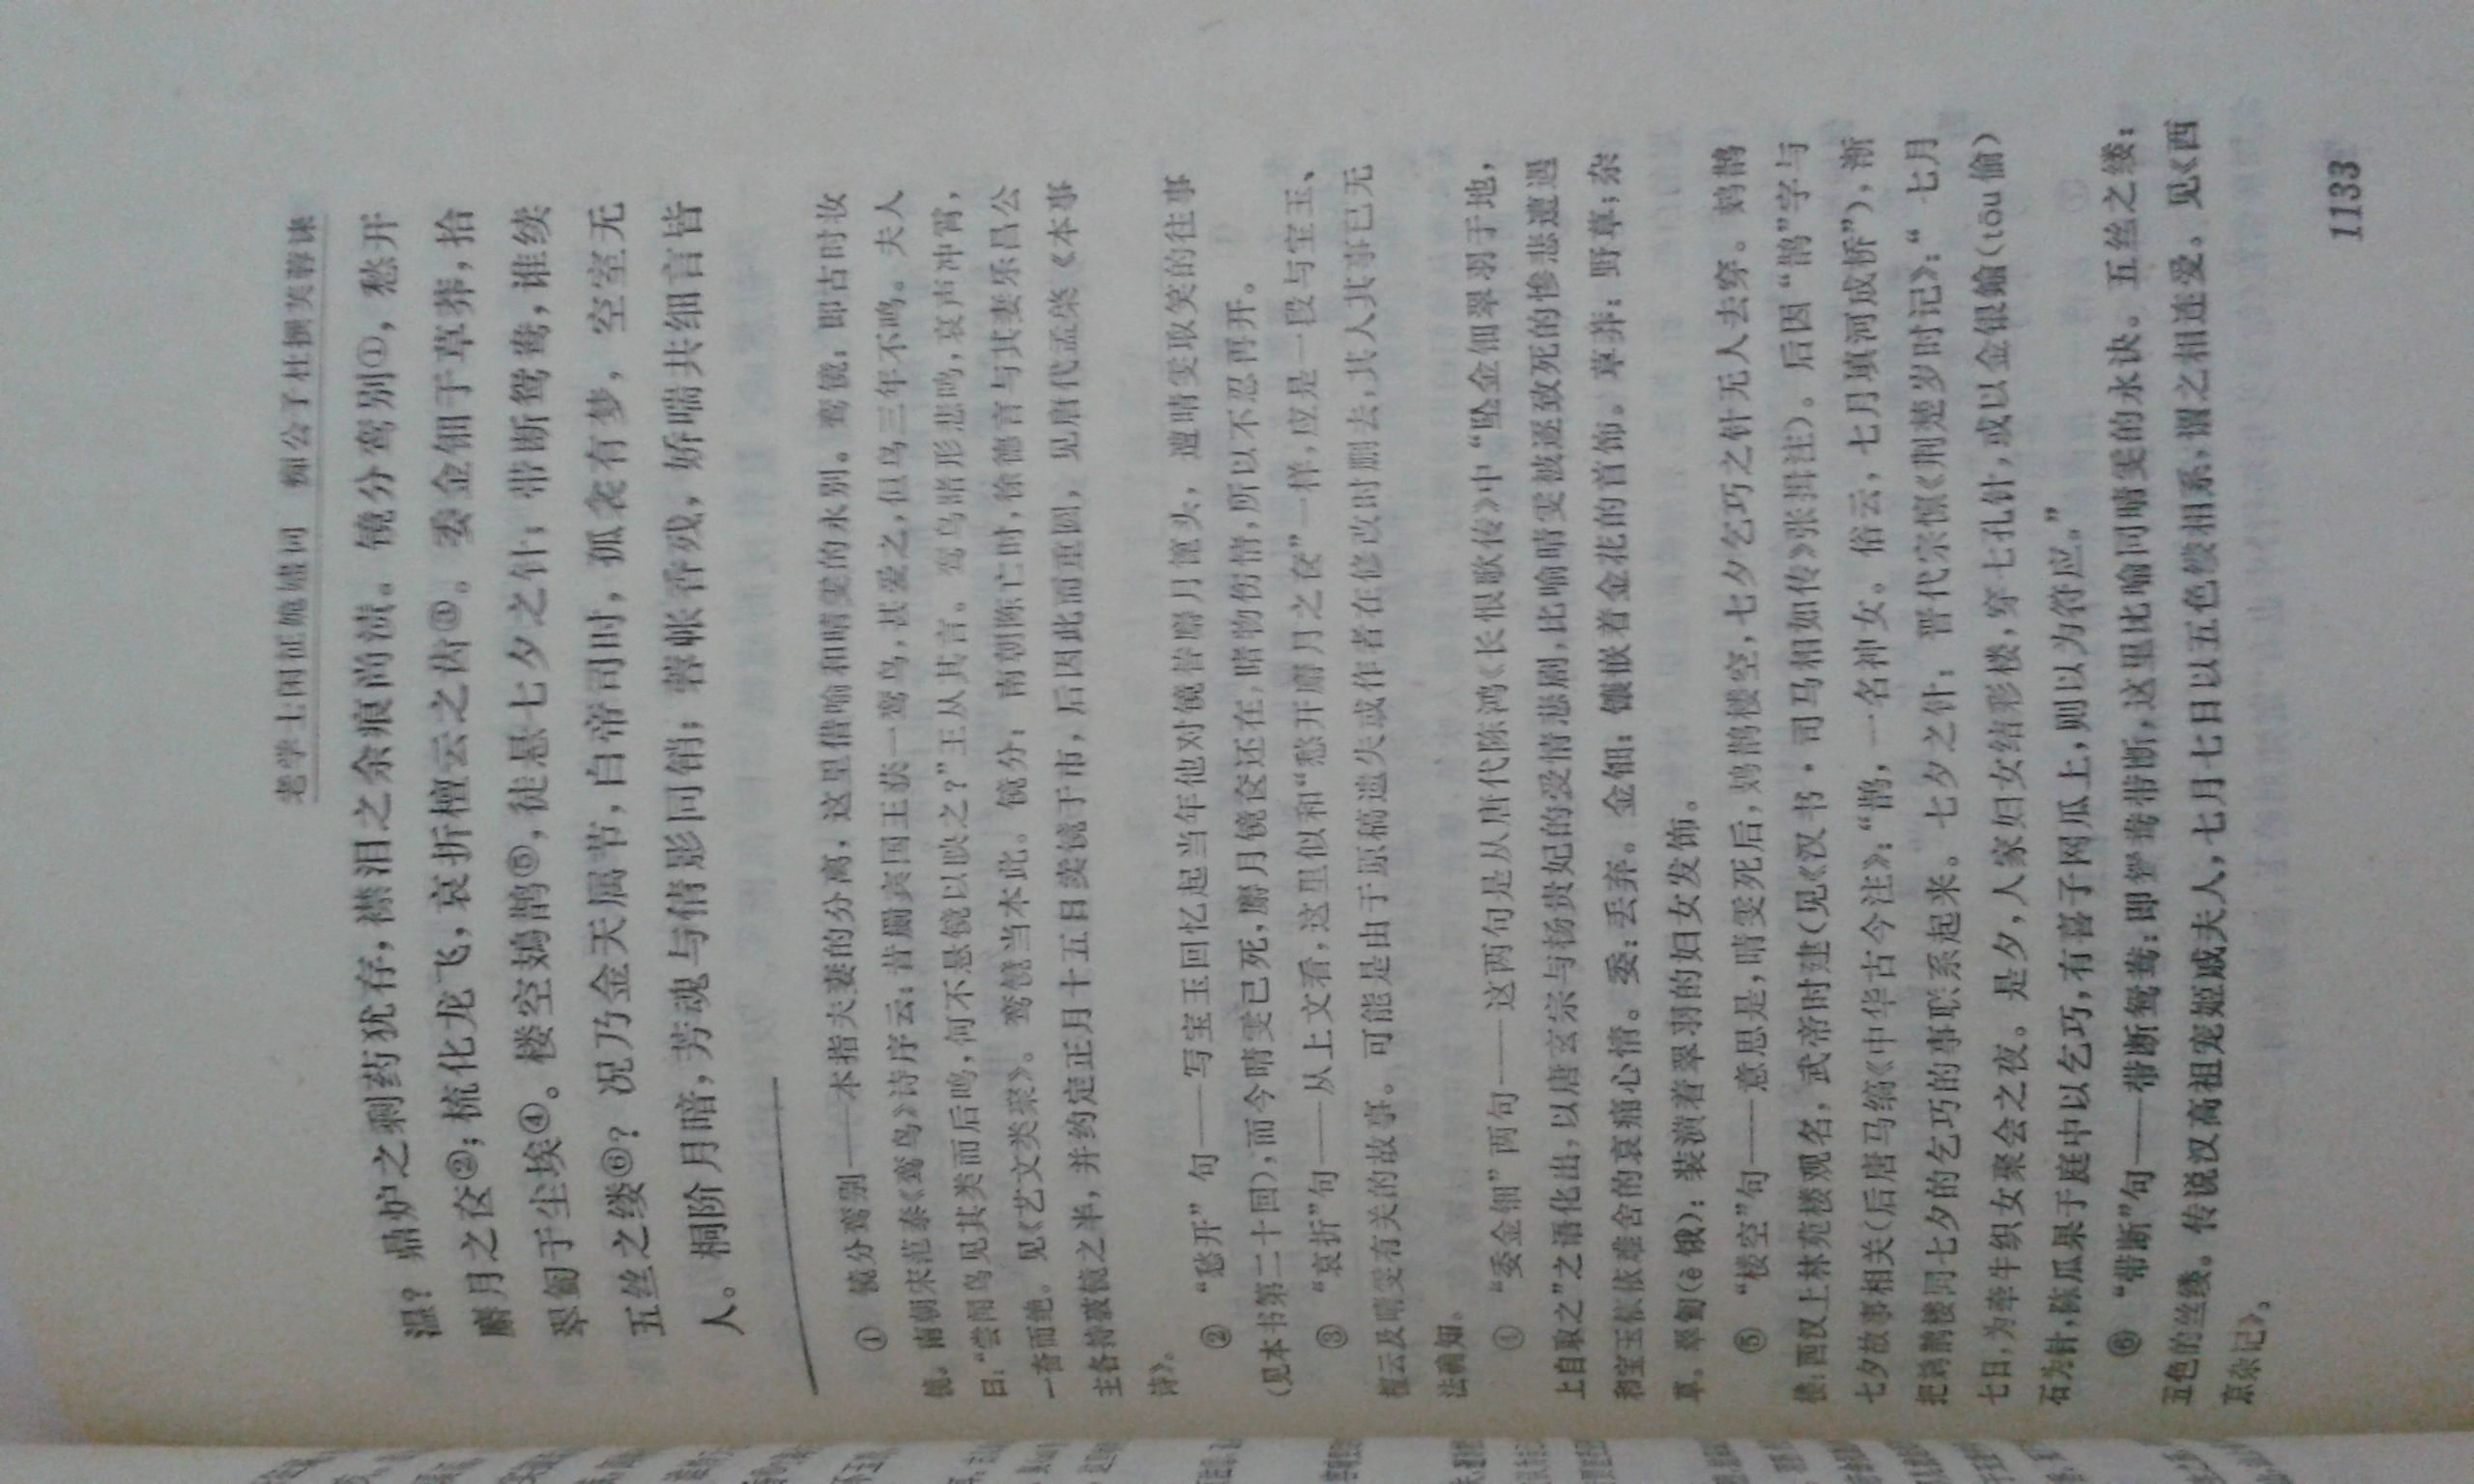 老学士闲征姽婳词 痴公子杜撰芙蓉诔
温？鼎炉之剩药犹存，襟泪之余痕尚渍。镜分鸾别①，愁开
麝月之奁②；梳化龙飞，哀折檀云之齿③。委金钿于草莽，拾
翠匎于尘埃④。楼空鳷鹊⑤，徒悬七夕之针；带断鸳鸯，谁续
五丝之缕⑥？况乃金天属节，白帝司时，孤衾有梦，空室无
人。桐阶月暗，芳魂与倩影同销；蓉帐香残，娇喘共细言皆
① 镜分鸾别——本指夫妻的分离，这里借喻和晴雯的永别。鸾镜：即古时妆
镜。南朝宋范泰《鸾鸟》诗序云：昔罽宾国王获一鸾鸟，甚爱之，但鸟三年不鸣。夫人
曰：“尝闻鸟见其类而后鸣，何不悬镜以映之？”王从其言。鸾鸟睹形悲鸣，哀声冲霄，
一奋而绝。见《艺文类聚》。鸾镜当本此。镜分：南朝陈亡时，徐德言与其妻乐昌公
主各持破镜之半，并约定正月十五日卖镜于市，后因此而重圆，见唐代孟棨《本事
诗》。
② “愁开”句——写宝玉回忆起当年他对镜替麝月篦头，遭晴雯取笑的往事
（见本书第二十回），而今晴雯已死，麝月镜奁还在，睹物伤情，所以不忍再开。
③ “哀折”句——从上文看，这里似和“愁开麝月之奁”一样，应是一段与宝玉、
檀云及晴雯有关的故事。可能是由于原稿遗失或作者在修改时删去，其人其事已无
法确知。
④ “委金钿”两句——这两句是从唐代陈鸿《长恨歌传》中“坠金钿翠羽于地，
上自取之”之语化出，以唐玄宗与杨贵妃的爱情悲剧，比喻晴雯被逐致死的惨悲遭遇
和宝玉依依难舍的哀痛心情。委：丢弃。金钿：镶嵌着金花的首饰。草莽：野草；杂
草。翠匎（è 饿）：装潢着翠羽的妇女发饰。
⑤ “楼空”句——意思是，晴雯死后，鳷鹊楼空，七夕乞巧之针无人去穿。鳷鹊
楼：西汉上林苑楼观名，武帝时建（见《汉书·司马相如传》张揖注）。后因“鹊”字与
七夕故事相关（后唐马缟《中华古今注》：“鹊，一名神女。俗云，七月填河成桥”），渐
把鳷鹊楼同七夕的乞巧的事联系起来。七夕之针：晋代宗懔《荆楚岁时记》：“七月
七日，为牵牛织女聚会之夜。是夕，人家妇女结彩楼，穿七孔针，或以金银鍮（tōu 偷）
石为针，陈瓜果于庭中以乞巧，有喜子网瓜上，则以为符应。”
⑥ “带断”句——带断鸳鸯：即鸳鸯带断，这里比喻同晴雯的永诀。五丝之缕：
五色的丝缕。传说汉高祖宠姬戚夫人，七月七日以五色缕相系，谓之相连爱。见《西
京杂记》。
1133